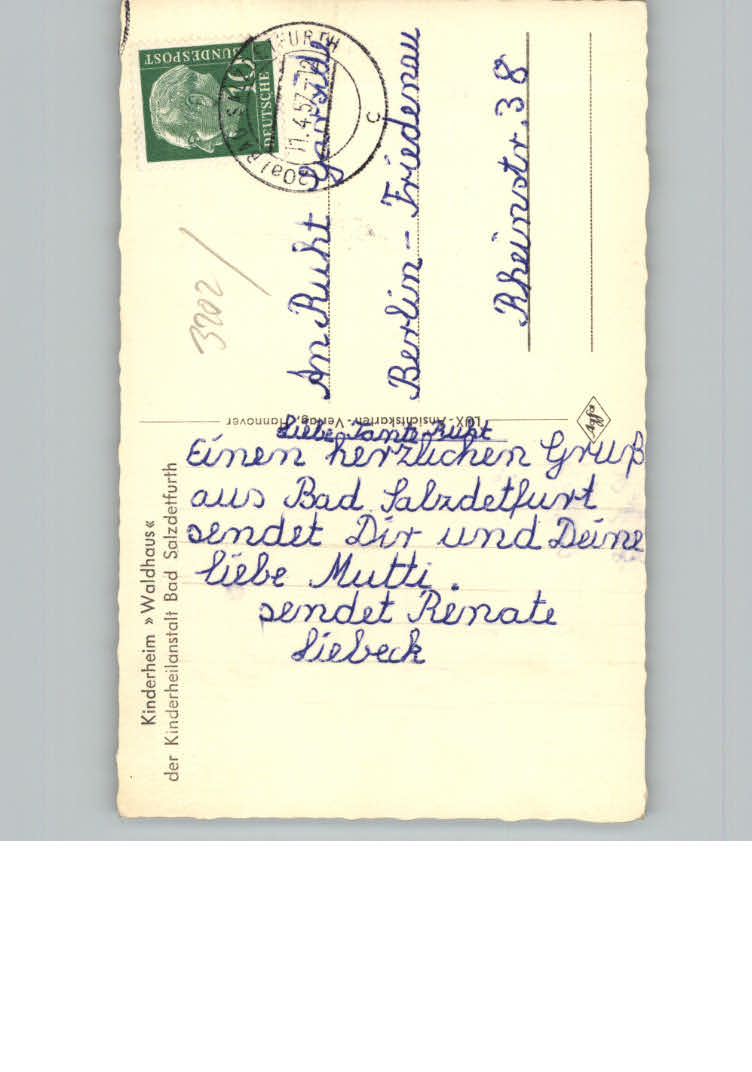 Kinderheim »Waldhaus«
der Kinderheilanstalt Bad Salzdetfurth
Liebe Tante Ruht
Einen herzlichen Gruß
aus Bad Salzdetfurt
sendet Dir und Deine
liebe Mutti.
sendet Renate
Liebeck
LUX-Ansichtskarten-Verlag, Hannover
Agfa
DEUTSCHE
BUNDESPOST
10
11.4.57-12
c
3202
An Ruht
Berlin-Friedenau
Rheinstr. 38